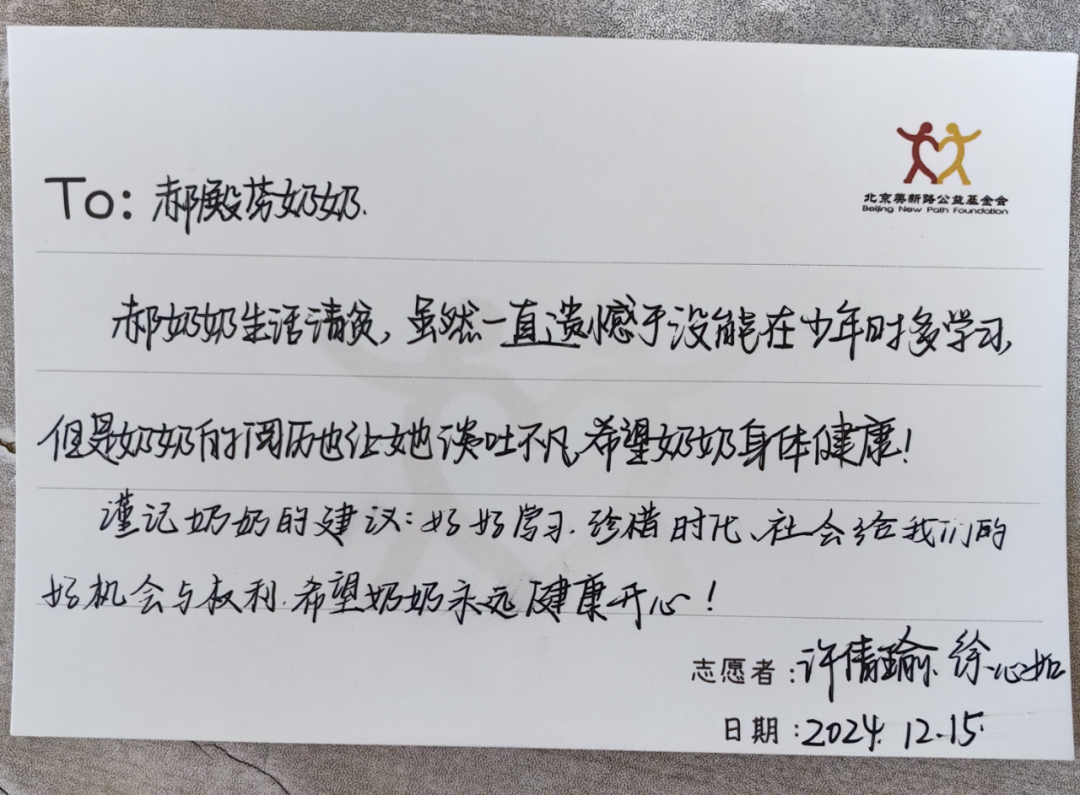 北京奥新路公益基金会
Beijing New Path Foundation
To: 郝殿芬奶奶.
郝奶奶生活清贫, 虽然一直遗憾于没能在少年时多学习,
但是奶奶的阅历也让她谈吐不凡,希望奶奶身体健康!
谨记奶奶的建议:好好学习.珍惜时代、社会给我们的
好机会与权利.希望奶奶永远健康开心!
志愿者:许倩瑜、徐心如
日期:2024.12.15